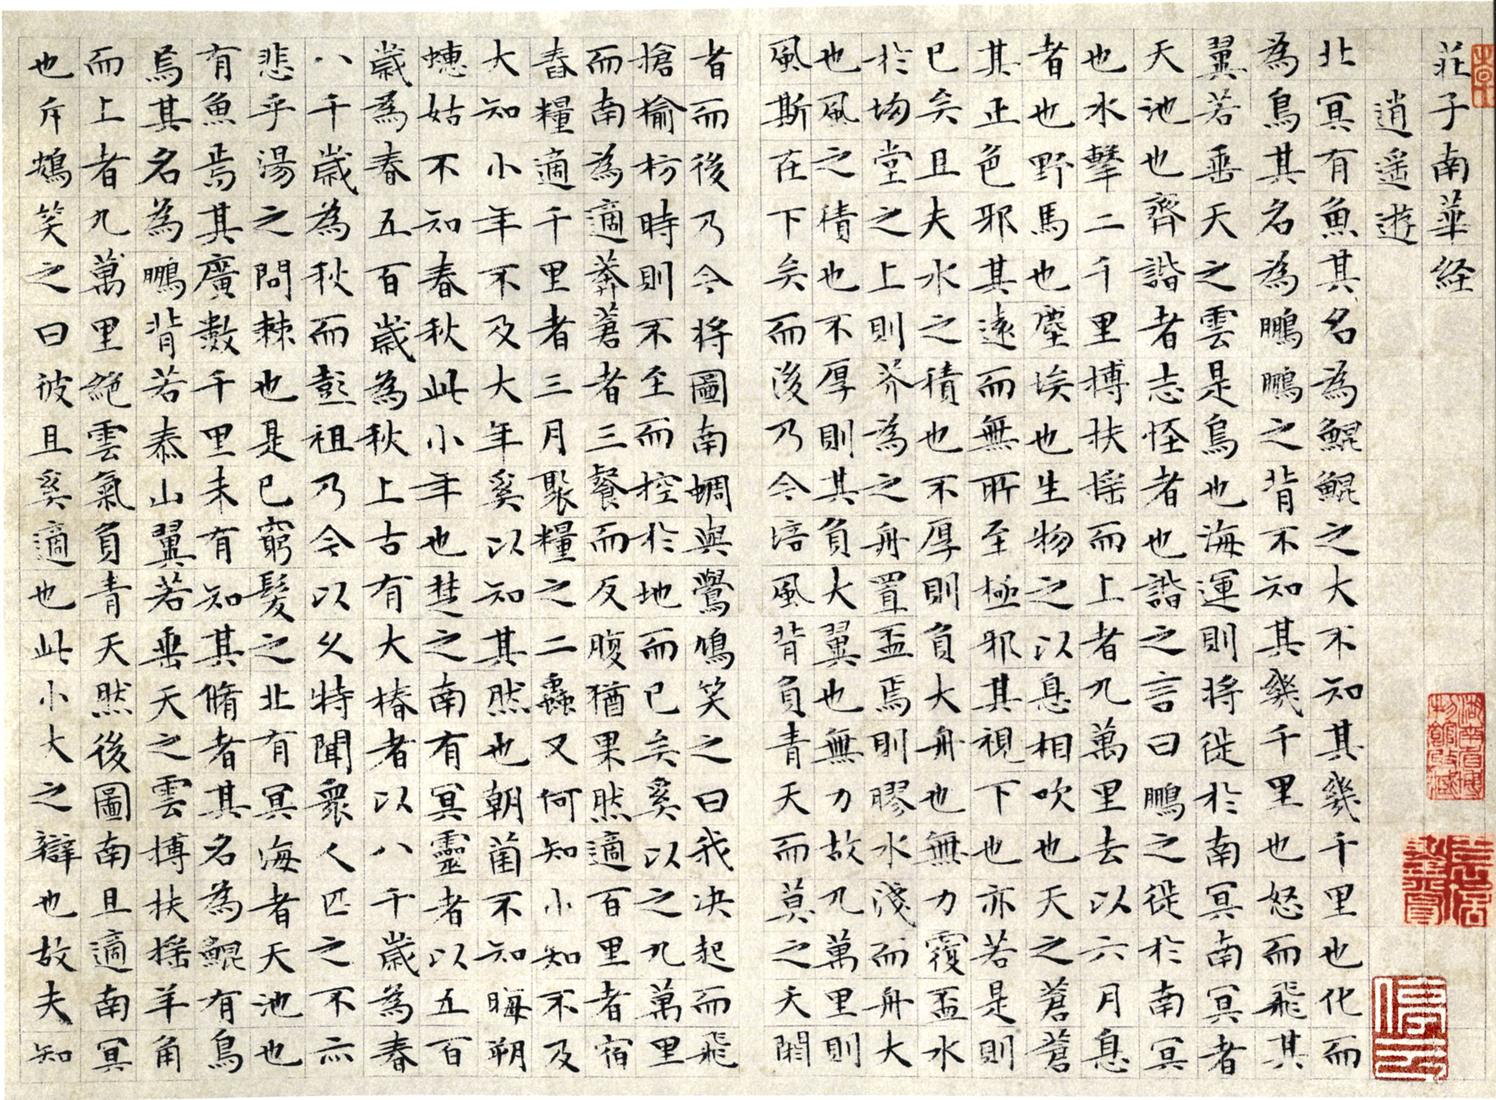 莊子南華経
逍遥遊
北冥有魚其名為鯤鯤之大不知其幾千里也化而
為鳥其名為鵬鵬之背不知其幾千里也怒而飛其
翼若垂天之雲是鳥也海運則将徙於南冥南冥者
天池也齊諧者志怪者也諧之言曰鵬之徙於南冥
也水擊二千里搏扶摇而上者九萬里去以六月息
者也野馬也塵埃也生物之以息相吹也天之蒼蒼
其正色邪其遠而無所至極邪其視下也亦若是則
已矣且夫水之積也不厚則負大舟也無力覆盃水
於坳堂之上則芥為之舟置盃焉則膠水淺而舟大
也風之積也不厚則其負大翼也無力故九萬里則
風斯在下矣而後乃今培風背負青天而莫之夭閼
者而後乃今将圖南蜩與鷽鳩笑之曰我决起而飛
搶榆枋時則不至而控於地而已矣奚以之九萬里
而南為適莽蒼者三餐而反腹猶果然適百里者宿
舂糧適千里者三月聚糧之二蟲又何知小知不及
大知小年不及大年奚以知其然也朝菌不知晦朔
蟪蛄不知春秋此小年也楚之南有冥靈者以五百
歲為春五百歲為秋上古有大椿者以八千歲為春
八千歲為秋而彭祖乃今以久特聞衆人匹之不亦
悲乎湯之問棘也是已窮髮之北有冥海者天池也
有魚焉其廣數千里未有知其脩者其名為鯤有鳥
焉其名為鵬背若泰山翼若垂天之雲搏扶摇羊角
而上者九萬里絶雲氣負青天然後圖南且適南冥
也斥鴳笑之曰彼且奚適也此小大之辯也故夫知